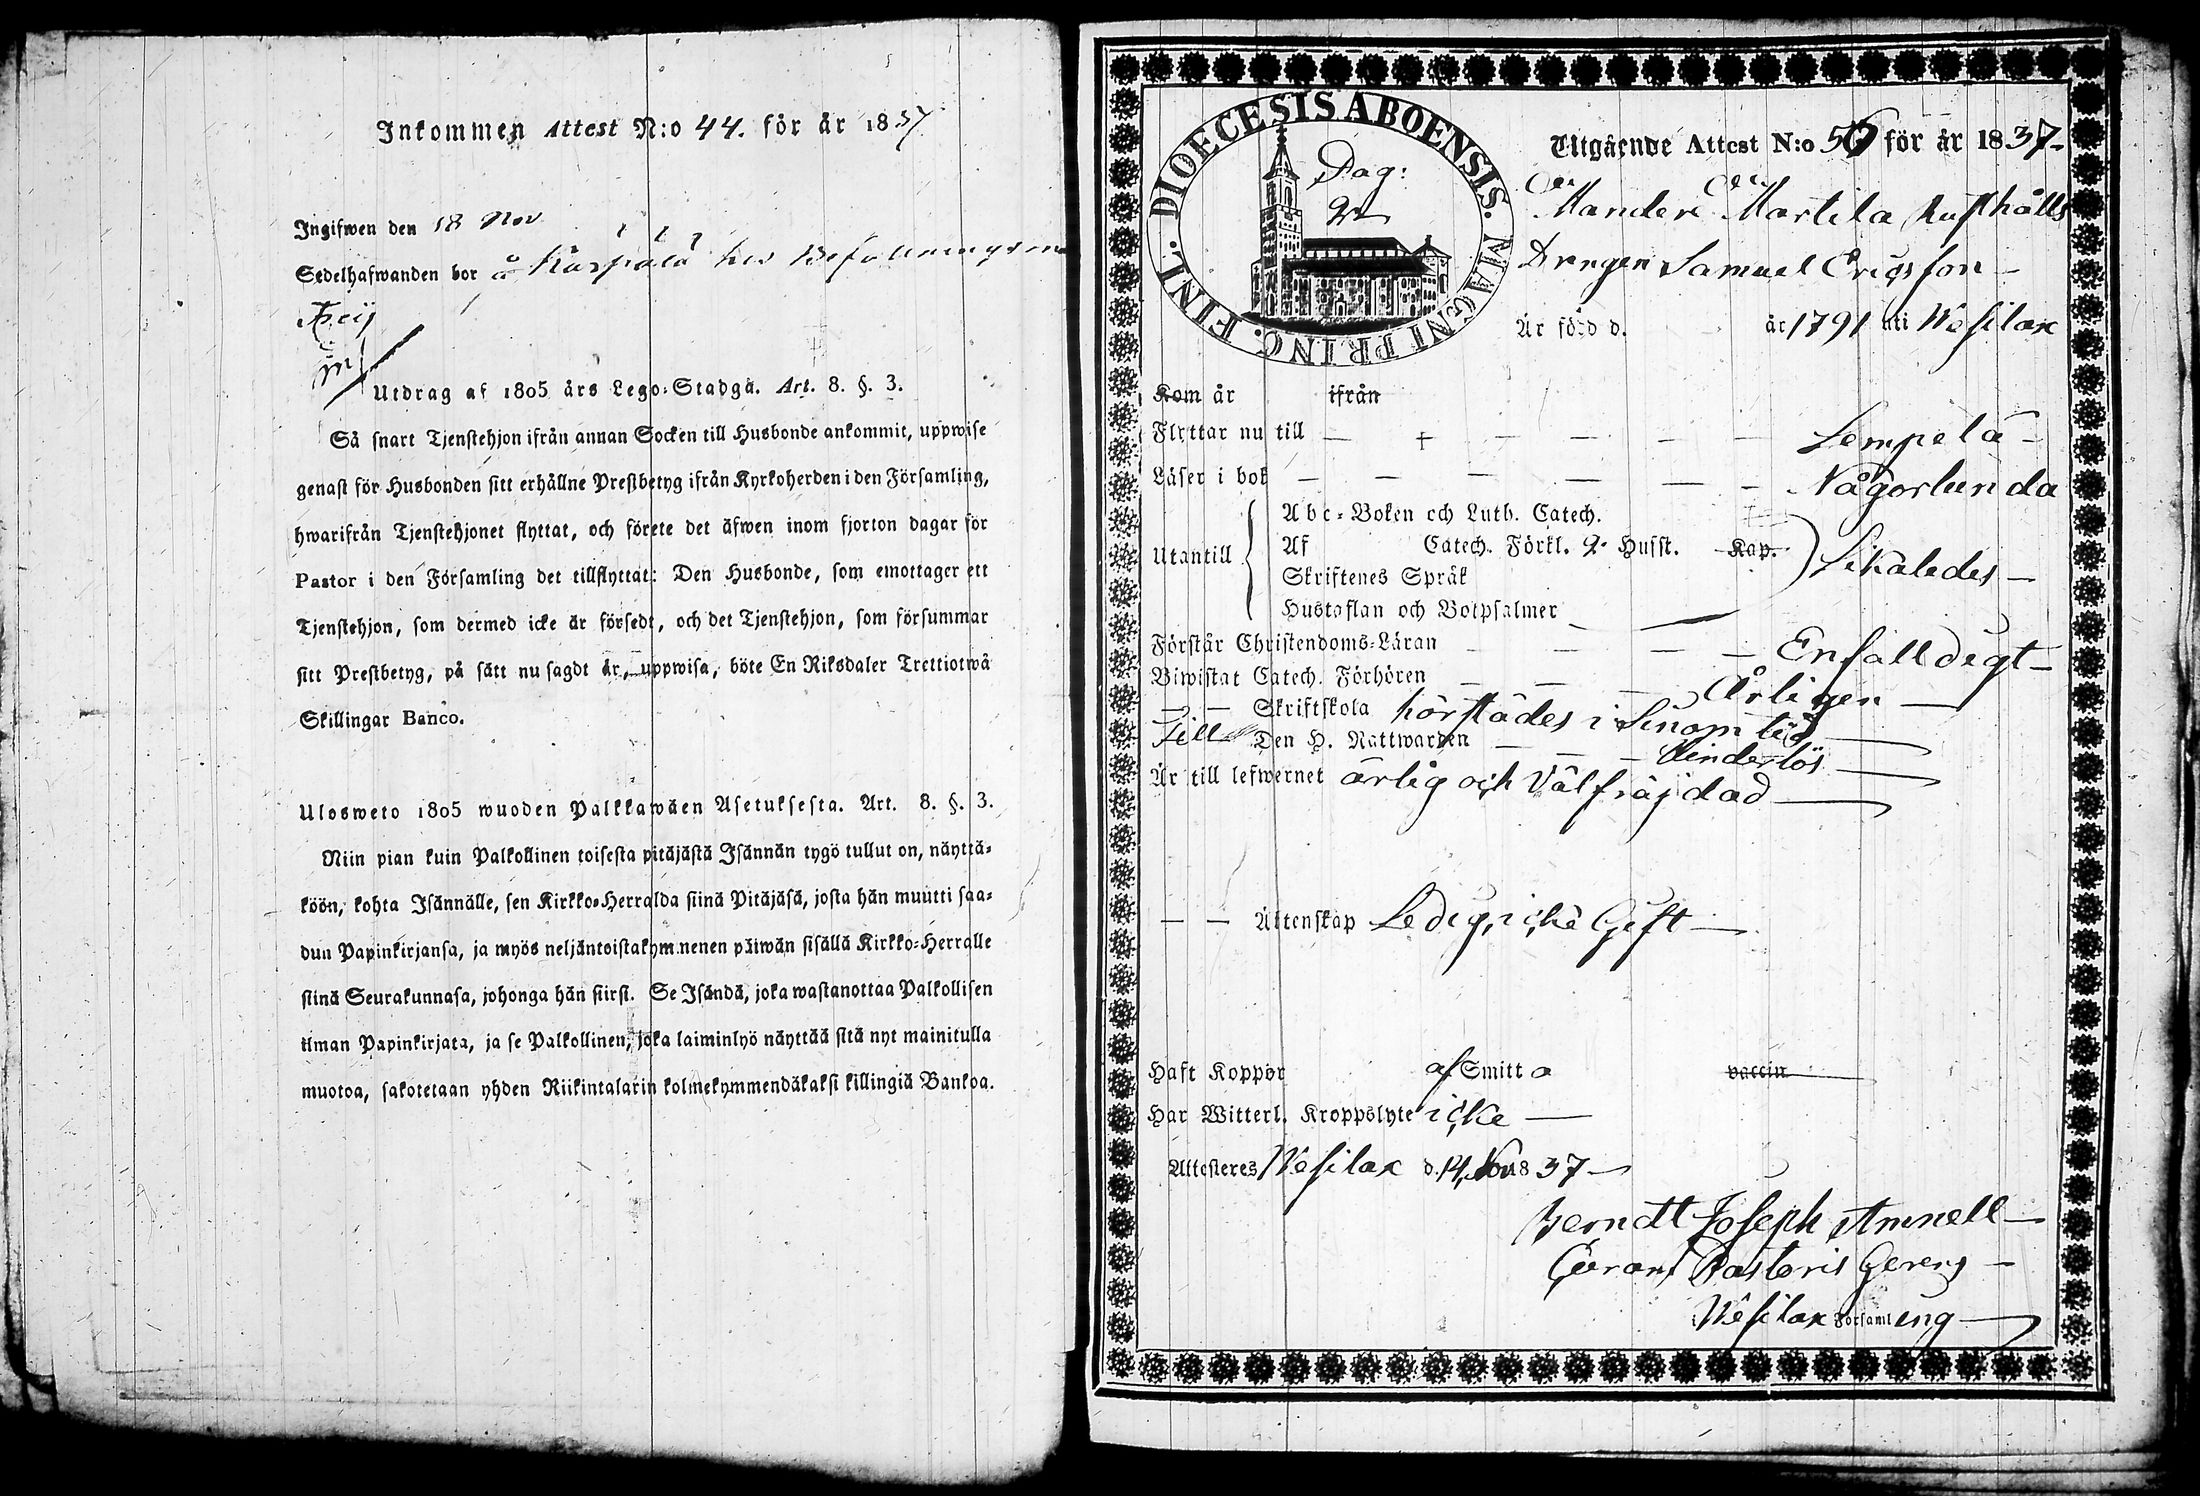 Inkommen Attest N:o 44. för år 1837
Ingifwen den 18 Nov
Sedelhafwanden bor å Kuspala hos Befallningsma
Freij
Utdrag af 1805 års Lego-Stadga. Art. 8. §. 3.
Så snart Tjenstehjon ifrån annan Socken till Husbonde ankommit, uppwise
genast för Husbonden sitt erhållne Prestbetyg ifrån Kyrkoherden i den Församling,
hwarifrån Tjenstehjonet flyttat, och förete det äfwen inom fjorton dagar för
Pastor i den Församling det tillflyttat: Den Husbonde, som emottager ett
Tjenstehjon, som dermed icke är försedt, och det Tjenstehjon, som försummar
sitt Prestbetyg, på sätt nu sagdt är, uppwisa, böte En Riksdaler Trettiotwå
Skillingar Banco.
Ulosweto 1805 wuoden Palkkawäen Asetuksesta. Art. 8. §. 3.
Niin pian kuin Palkollinen toisesta pitäjästä Isännän tygö tullut on, näyttä-
köön, kohta Isännälle, sen Kirkko-Herralda siinä Pitäjäsä, josta hän muutti saa-
dun Papinkirjansa, ja myös neljäntoistakymmenen päiwän sisällä Kirkko-Herralle
siinä Seurakunnasa, johonga hän siirsi. Se Isändä, joka wastanottaa Palkollisen
ilman Papinkirjata, ja se Palkollinen, joka laiminlyö näyttää sitä nyt mainitulla
muotoa, sakotetaan yhden Riikintalarin kolmekymmendäkaksi killingiä Bankoa.
DIOECESIS ABOENSIS. MAGNI PRINC. FINL.
Pag:
Utgående Attest N:o 56 för år 1837-
Manderé Martila Rusthålls
Drengen Samuel Ericsson
Är född d. år 1791 uti Wesilax
Kom år ifrån
Flyttar nu till Lempelä
Läser i bok Någorlunda
Utantill
Abc-Boken och Luth. Catech.
Af Catech. Förkl. 2 Husst. Kap.
Likaledes
Skriftenes Språk
Hustaflan och Botpsalmer
Förstår Christendoms-Läran Enfalldigt
Biwistat Catech. Förhören Årligen
Skriftskola härstädes i sinom tid
Till Den H. Nattwarden hinderlös
Är till lefwernet ärlig och välfräjdad
Äktenskap Ledig, icke Gift
Haft Koppor af Smitta vaccin
Har Witterl. Kroppslyte icke
Attesteres Wesilax d. 14 Nov 1837
Berndt Joseph Amnell
Curam Pastoris Gerens
i Wesilax Församling